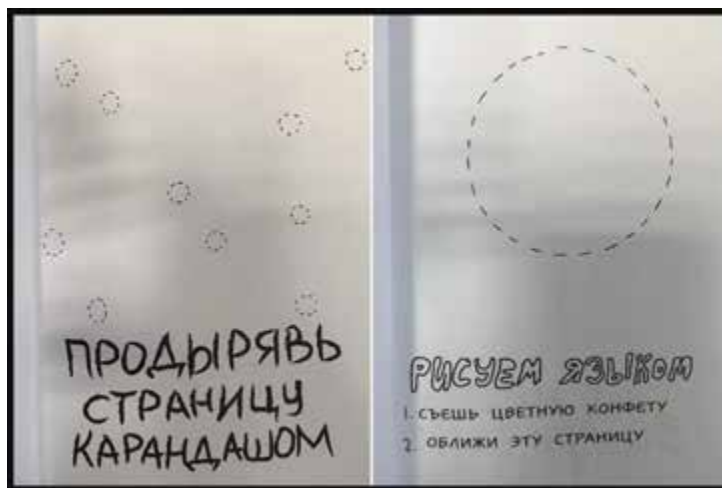 ПРОДЫРЯВЬ
СТРАНИЦУ
КАРАНДАШОМ
РИСУЕМ ЯЗЫКОМ
1. СЪЕШЬ ЦВЕТНУЮ КОНФЕТУ
2. ОБЛИЖИ ЭТУ СТРАНИЦУ